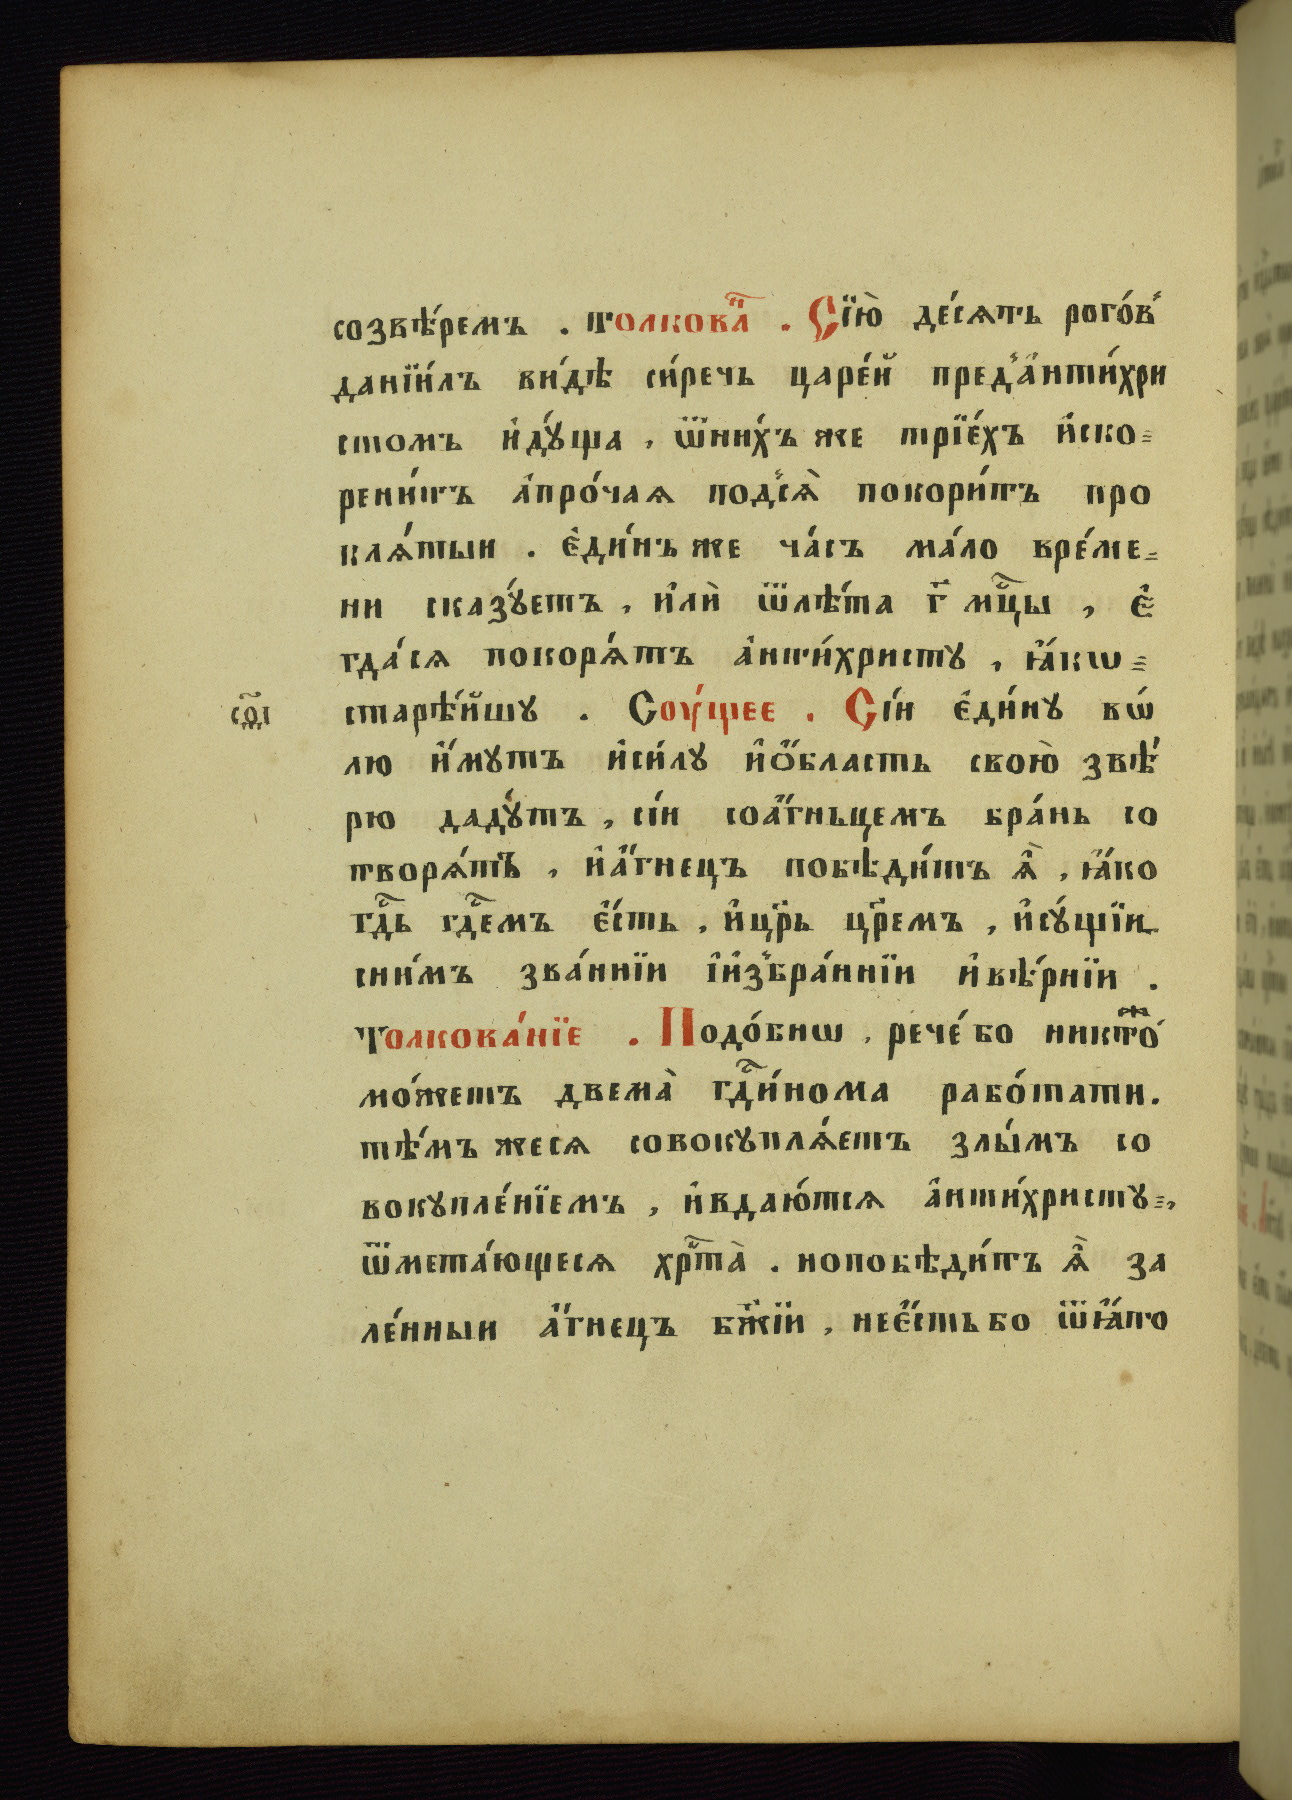 созвѣ́ремъ . толкова́нⷤ . Сїю̀ де́сѧть рого́в̾
данїи́лъ ви́дѣ си́речь царе́й пред̾а҆нти́хри
стомъ и҆дꙋ́ща , ѿни́хъ же трїе́хъ и҆ско=
рени́тъ а҆про́чаѧ под̾сѧ̀ покори́тъ про
клѧ́тыи . є҆ди́нъ же ча́съ ма́ло вре́ме=
ни сказꙋ́етъ , и҆лѝ ѿлѣ́та г҃ мцⷭ҇ы , є҆
гда́сѧ покорѧ́тъ а҆нти́христꙋ , ꙗ҆́кѡ=
старѣ́йшꙋ . Соу́щее . Сі́и є҆ди́нꙋ вѡ́
сѻ҃ді
лю и҆́мꙋтъ и҆си́лꙋ и҆ѻ҆́бласть свою̀ звѣ́
рю дадꙋ́тъ , сі́и соа҆́гньцемъ бра́нь со
творѧ́тъ , и҆а҆́гнецъ побѣди́тъ ѧ҆̀ , ꙗ҆́ко
гдⷭ҇ь гдⷭ҇емъ є҆́сть , и҆цр҃ь цр҃емъ , и҆сꙋ́щїи
сни́мъ зва́ннїи і҆и҆з̾бра́ннїи и҆вѣ́рнїи .
Толкова́нїе . Подо́бнѡ , рече́ бо никто́ⷤ
мо́жетъ двема̀ гдⷭ҇и́нома рабо́тати .
тѣ́мъ жесѧ совокꙋплѧ́етъ злы́мъ со
вокꙋпле́нїемъ , и҆вдаю́тсѧ а҆нти́христꙋ=,
ѿмета́ющесѧ хрⷭ҇та̀ . нопобѣди́тъ ѧ҆̀ за
ле́нныи а҆́гнецъ бж҃їи , неє҆́сть бо ѿꙗ҆́по